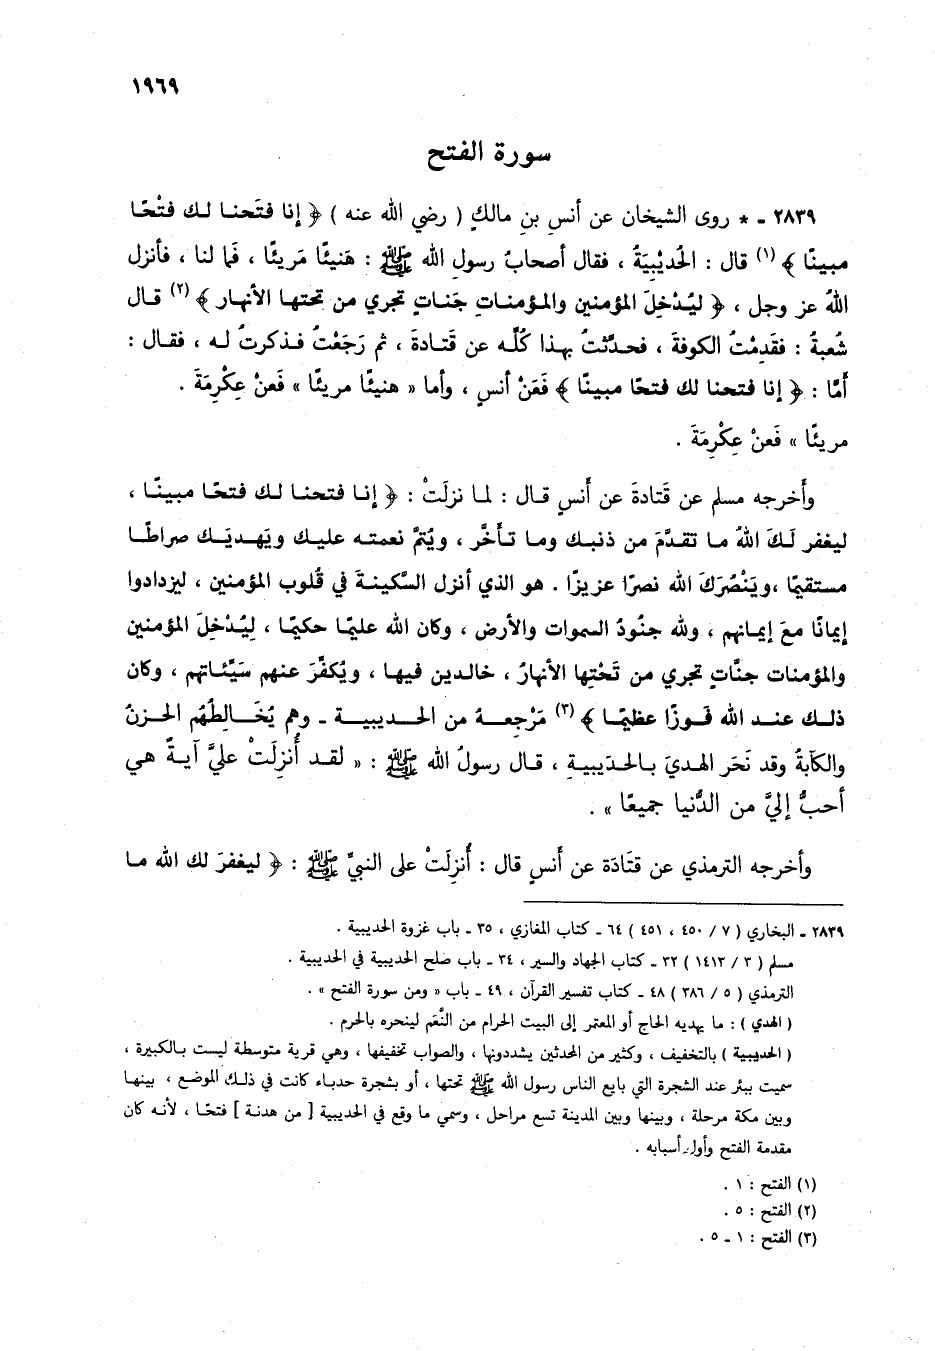 ١٩٦٩
سورة الفتح
٢٨٣٩ ـ * روى الشيخان عن أنس بنِ مالكٍ ( رضي الله عنه ) ﴿ إنا فتَحنا لك فتْحًا
مبينًا ﴾ (١) قال : الحُديْبِيَةُ ، فقال أصحابُ رسولِ الله ﷺ : هَنيئًا مَريئًا ، فَما لنا ، فأنزل
اللهُ عز وجل ، ﴿ ليُدْخِلَ المؤمنين والمؤمنات جَناتٍ تجري من تحتها الأنهار ﴾ (٢) قال
شُعبةُ : فقَدِمْتُ الكوفةَ ، فحدَّثتُ بهذا كلِّه عن قَتادةَ ، ثم رَجَعْتُ فذكرتُ له ، فقال :
أمَّا : ﴿ إنا فتحنا لك فتحًا مبينًا ﴾ فَعَنْ أنسٍ ، وأما « هنيئًا مريئًا » فَعنْ عِكْرِمَةَ .
مريئًا » فَعنْ عِكْرِمَةَ .
وأَخرجه مسلم عن قَتادةَ عن أَنسٍ قال : لما نزلَتْ : ﴿ إنا فتحنا لك فتحًا مبينًا ،
ليغفر لَكَ اللهُ ما تقدَّمَ من ذنبك وما تأخَّر ، ويُتمَّ نعمته عليك ويَهديَك صراطًا
مستقيمًا ،ويَنْصُرَكَ الله نصرًا عزيزًا . هو الذي أنزل السَّكينةَ في قُلوب المؤمنين ، ليزدادوا
إيمانًا معَ إيمانهم ، ولله جنُودُ السموات والأرض ، وكان الله عليمًا حكيمًا ، لِيُدْخِلَ المؤمنين
والمؤمنات جنَّاتٍ تجري من تَحْتِها الأنهارُ ، خالدين فيها ، ويُكفِّرَ عنهم سَيِّئاتهم ، وكان
ذلك عند الله فوزًا عظيمًا ﴾ (٣) مَرْجعهُ من الحديبية ـ وهم يُخَالِطُهُم الحزنُ
والكآبةُ وقد نَحَر الهديَ بالحدَيبيةِ ، قال رسولُ الله ﷺ : « لقد أُنزلَتْ عليَّ آيةٌ هي
أحبُّ إليَّ من الدُّنيا جميعًا » .
وأخرجه الترمذي عن قتَادَة عن أَنسٍ قال : أُنزلَتْ على النبيِّ ﷺ : ﴿ ليغفرَ لك الله ما
٢٨٣٩ ـ البخاري ( ٧ / ٤٥٠ ، ٤٥١ ) ٦٤ ـ كتاب المغازي ، ٣٥ ـ باب غزوة الحديبية .
مسلم ( ٣ / ١٤١٣ ) ٣٢ ـ كتاب الجهاد والسير ، ٣٤ ـ باب صلح الحديبية في الحديبية .
الترمذي ( ٥ / ٣٨٦ ) ٤٨ ـ كتاب تفسير القرآن ، ٤٩ ـ باب « ومن سورة الفتح » .
( الهدي ) : ما يهديه الحاج أو المعتمر إلى البيت الحرام من النَّعَم لينحره بالحرم .
( الحديبية ) بالتخفيف ، وكثير من المحدثين يشددونها ، والصواب تخفيفها ، وهي قرية متوسطة ليست بالكبيرة ،
سميت ببئر عند الشجرة التي بايع الناس رسول الله ﷺ تحتها ، أو بشجرة حدباء كانت في ذلك الموضع ، بينها
وبين مكة مرحلة ، وبينها وبين المدينة تسع مراحل ، وسمي ما وقع في الحديبية [ من هدنة ] فتحًا ، لأنه كان
مقدمة الفتح وأول أسبابه .
(١) الفتح : ١ .
(٢) الفتح : ٥ .
(٣) الفتح : ١ ـ ٥ .